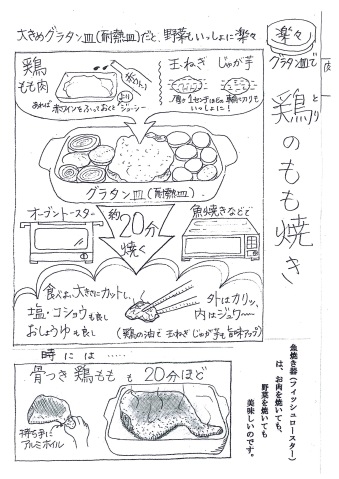 大きめグラタン皿(耐熱皿)だと、野菜もいっしょに楽々
楽々
グラタン皿で
鶏のもも焼き
とり
肉
鶏
もも肉
赤ワイン
あれば 赤ワインをふっておくと
より
ジューシー
玉ねぎ じゃが芋
1センチ
いっしょに!
グラタン皿(耐熱皿)
オーブントースター
約20分
焼く
魚焼きなどで
食べよい大きさにカットし、
塩・コショウも良し
おしょうゆも良し
外はカリッ、
内はジュワ〜
(鶏の油で 玉ねぎ じゃが芋も 旨味アップ)
時には……
骨つき 鶏もも も 20分ほど
持ち手に
アルミホイル
魚焼き器(フィッシュロースター)
は、お肉を焼いても、
野菜を焼いても
美味しいのです。